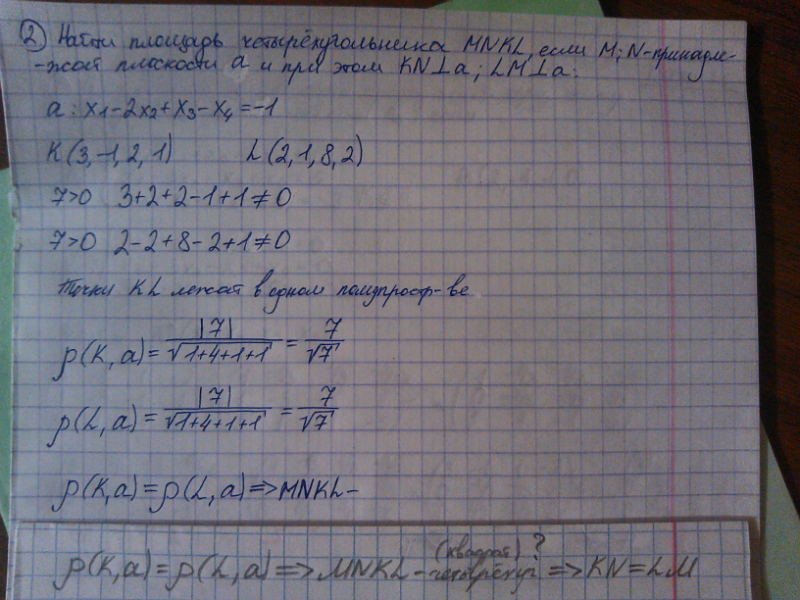 2) Найти площадь четырёхугольника MNKL, если M; N-принадле-
-жат плоскости a и при этом KN⊥a; LM⊥a.
a: x₁-2x₂+x₃-x₄=-1
K(3,-1,2,1) L(2,1,8,2)
7>0 3+2+2-1+1≠0
7>0 2-2+8-2+1≠0
Точки KL лежат в одном полупростр-ве
ρ(K,a)=|7|/√1+4+1+1=7/√7
ρ(L,a)=|7|/√1+4+1+1=7/√7
ρ(K,a)=ρ(L,a)⇒MNKL-
(квадрат)?
ρ(K,a)=ρ(L,a)⇒MNKL-четырёхуг⇒KN=LM